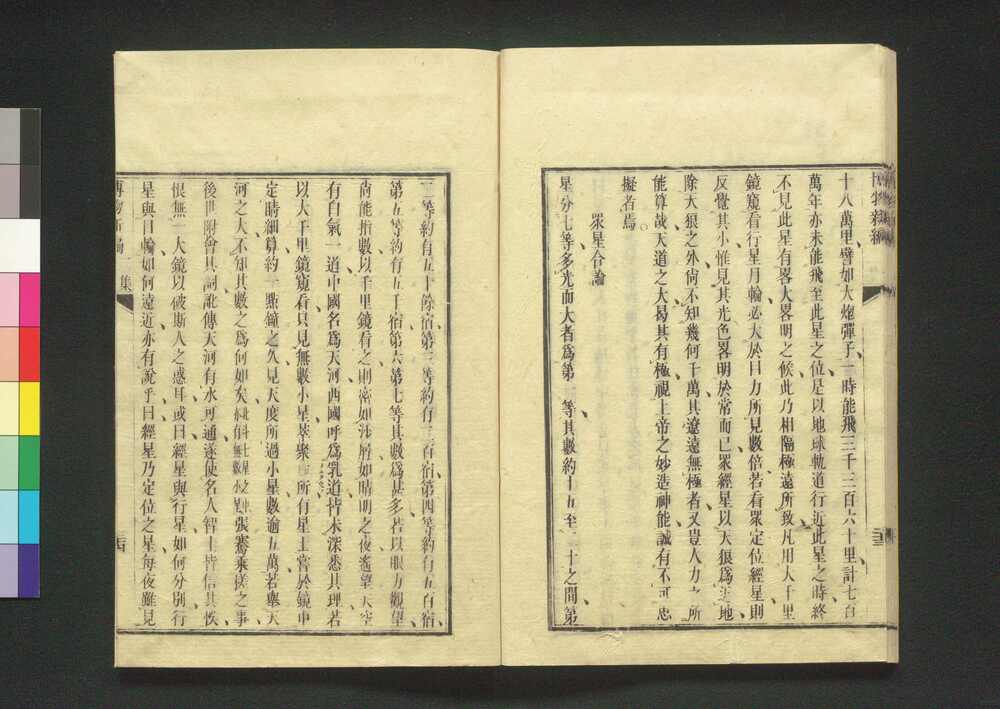 十八萬里譬如大炮彈子一時能飛三千三百六十里計七百
萬年亦未能飛至此星之位是以地球軌道行近此星之時終
不見此星有畧大畧明之候此乃相隔極遠所致凡用人千里
鏡窺看行星月輪必大於目力所見數倍若看眾定位經星則
反覺其小惟見其光色畧明於常而已眾經星以天狼為主地
除天狼之外尚不知幾何千萬其遼遠無極者又豈人力之所
能算哉天道之大曷其有極視上帝之妙造神能誠有不可思
擬者焉
眾星合論
星分七等多光而大者為第一等其數約十五至二十之間第
二等約有五十餘宿第三等約有二百宿第四等約有五百宿
第五等約有五千宿第六第七等其數為甚多若以眼力觀望
尚能指數以千里鏡看之則密如沙屑如晴明之夜遙望天空
有白氣一道中國名為天河西國呼為乳道皆未深悉其理若
以大千里鏡窺看只見無數小星萃聚三所有星士嘗於鏡中
定睛細算約一點鐘之久見天度所過小星數逾五萬若舉天
河之大不知其數之為何如矣 張騫乘槎之事
後世附會其詞訛傳天河有水可通遂使名人智士皆信其悞
恨無一大鏡以破斯人之惑耳或曰經星與行星如何分別行
星與日輪如何遠近亦有說乎曰經星乃定位之星每夜雖見
博物新編
一集